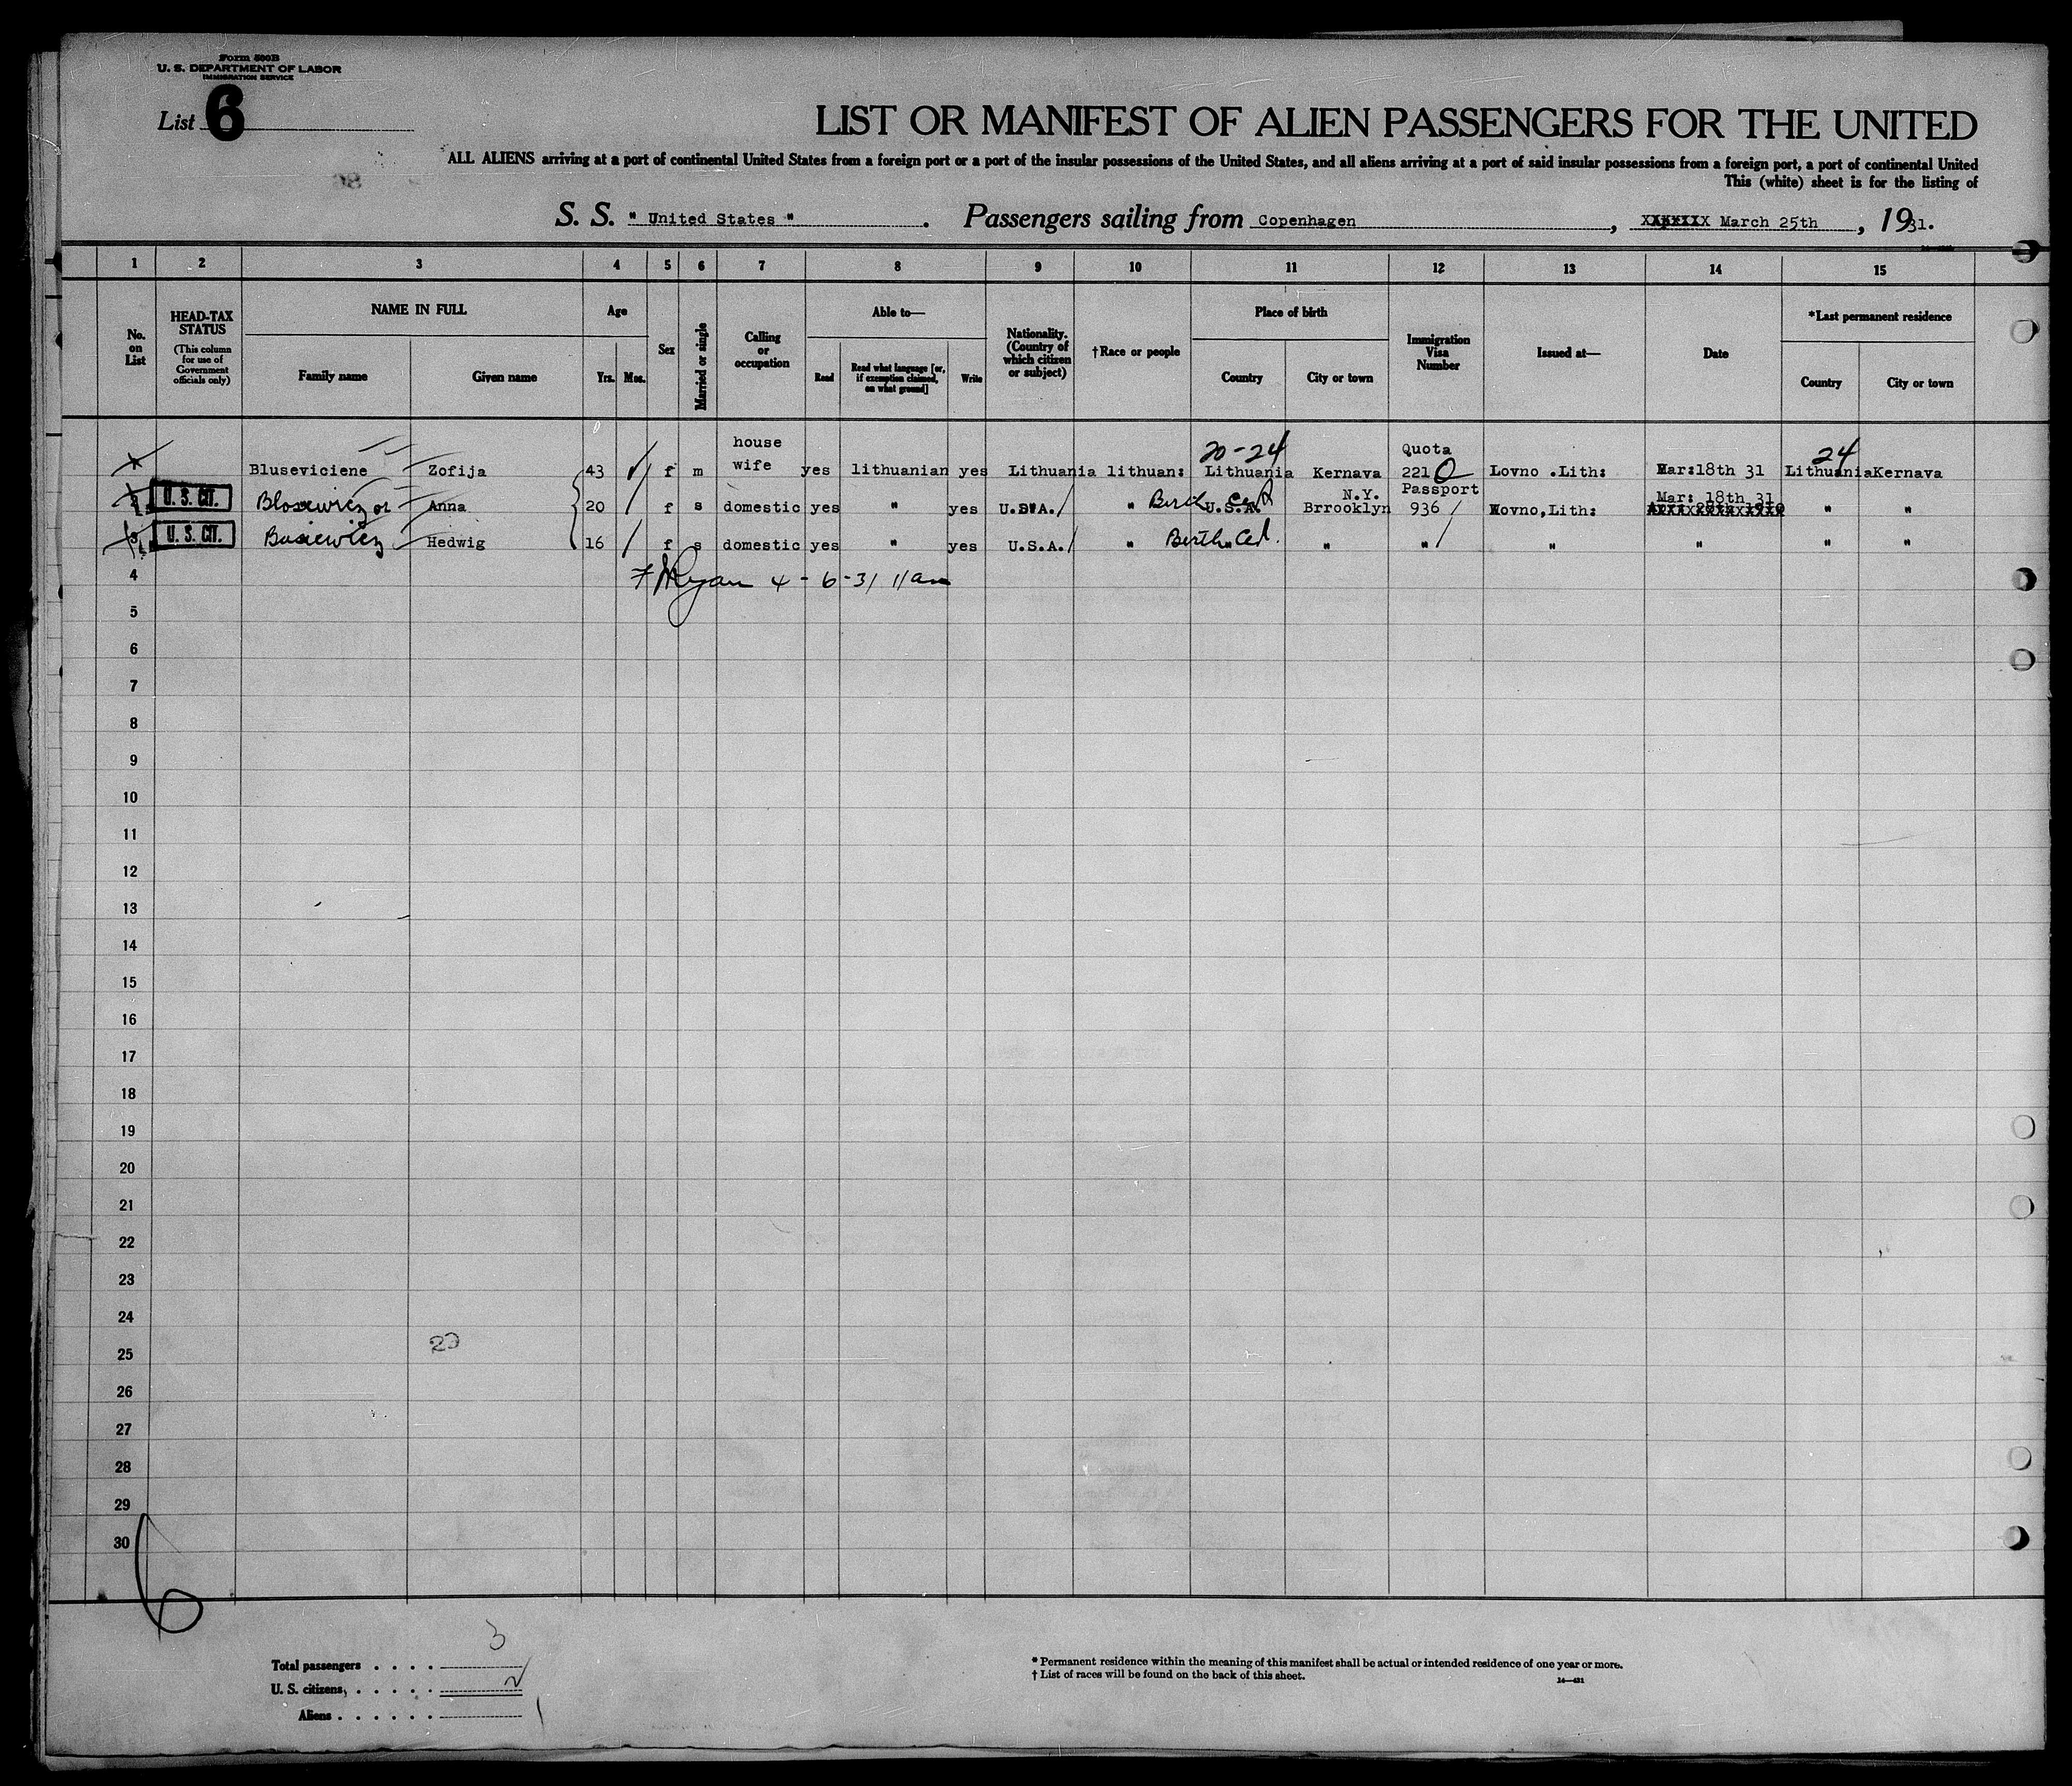 Form 500B
U. S. DEPARTMENT OF LABOR
IMMIGRATION SERVICE
List 6
LIST OR MANIFEST OF ALIEN PASSENGERS FOR THE UNITED
ALL ALIENS arriving at a port of continental United States from a foreign port or a port of the insular possessions of the United States, and all aliens arriving at a port of said insular possessions from a foreign port, a port of continental United
This (white) sheet is for the listing of
S. S. " United States " . Passengers sailing from Copenhagen , March 25th , 1931.
1 2 3 4 5 6 7 8 9 10 11 12 13 14 15
No. on List
HEAD-TAX STATUS
(This column for use of Government officials only)
NAME IN FULL
Family name Given name
Age
Yrs. Mos.
Sex
Married or single
Calling or occupation
Able to—
Read
Read what language [or, if exemption claimed, on what ground]
Write
Nationality. (Country of which citizen or subject)
†Race or people
Place of birth
Country City or town
Immigration Visa Number
Issued at—
Date
*Last permanent residence
Country City or town
house 20-24 Quota 24
Bluseviciene Zofija 43 f m wife yes lithuanian yes Lithuania lithuan: Lithuania Kernava 221 Q Lovno .Lith: Mar:18th 31 Lithuania Kernava
N.Y. Passport Mar: 18th 31
U. S. CIT. Blosewicz or Anna 20 f s domestic yes " yes U.S.A. " Birth Cert U.S.A. Brrooklyn 936 Kovno,Lith: " "
U. S. CIT. Busiewicz Hedwig 16 f s domestic yes " yes U.S.A. " Birth Cert. " " " " " " "
4
Ryan 4-6-31 11am
5
6
7
8
9
10
11
12
13
14
15
16
17
18
19
20
21
22
23
24
25
26
27
28
29
30
6
Total passengers . . . . 3
U. S. citizens . . . . . 2
Aliens . . . . . . 1
* Permanent residence within the meaning of this manifest shall be actual or intended residence of one year or more.
† List of races will be found on the back of this sheet.